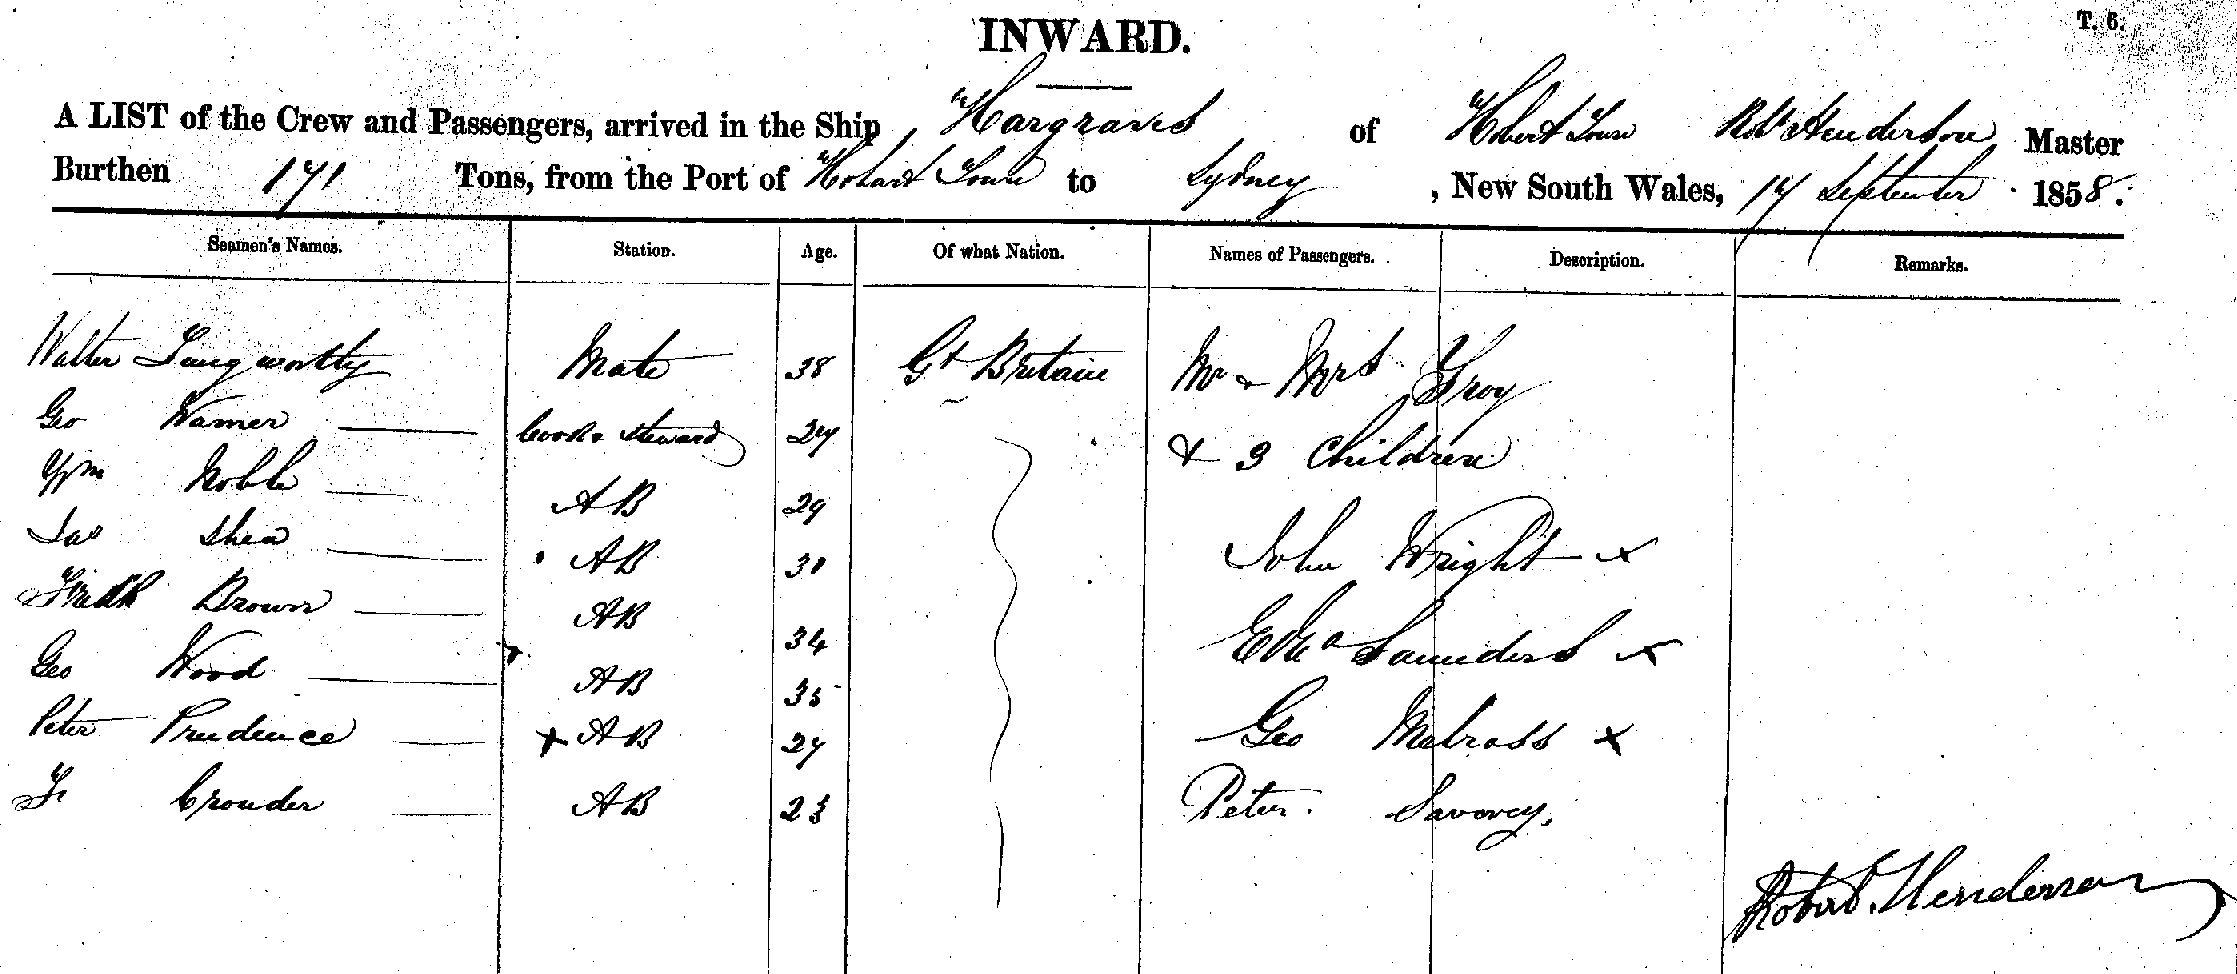 T. 6.
INWARD.
A LIST of the Crew and Passengers, arrived in the Ship, Hargraves of Hobart Town Robt Henderson Master
Burthen 171 Tons, from the Port of Hobart Town to Sydney, New South Wales, 17 September 1858.
Seamen's Names. Station. Age. Of what Nation. Names of Passengers. Description. Remarks.
Walter Langworthy Mate 38 Gt Britain Mr & Mrs Troy
Geo Warner Cook & Steward 27 & 3 Children
Wm Noble AB 29
Jas Shea AB 30 John Wright x
Brown AB 34 Saunders x
Geo Wood AB 35
Peter Prudence x AB 27 Geo Melross x
Crouder AB 23 Peter Savorey.
Robert Henderson